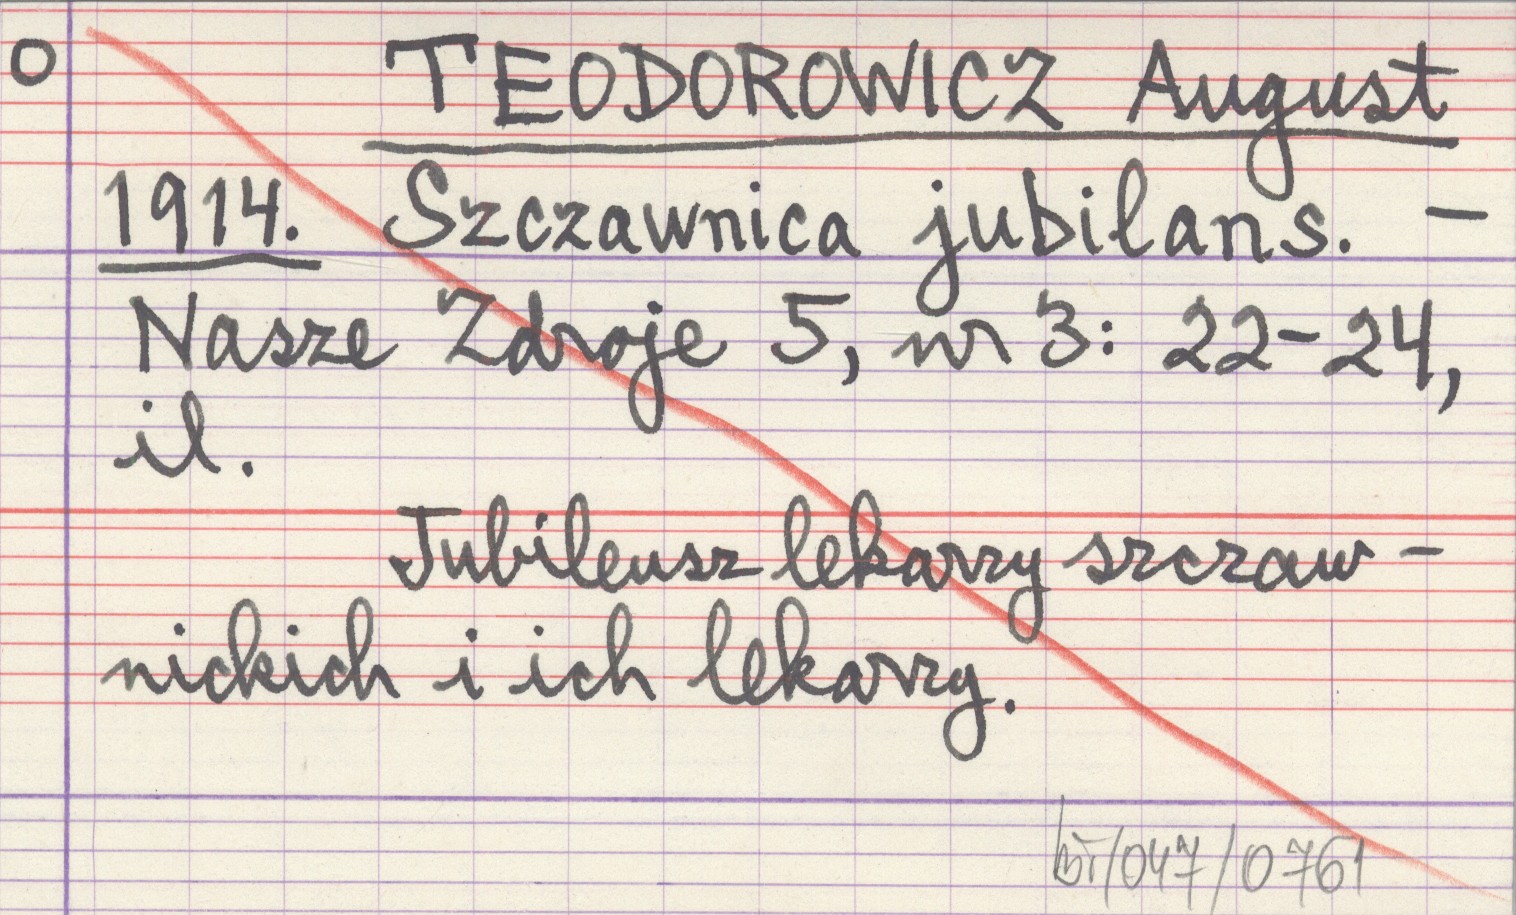 O TEODOROWICZ August
1914. Szczawnica jubilans. –
Nasze Zdroje 5, nr 3: 22–24,
il.
Jubileusz lekarzy szczaw-
nickich i ich lekarzy.
bt/047/0761